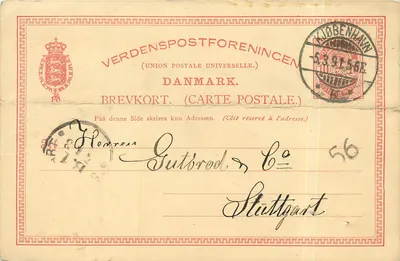 VERDENSPOSTFORENINGEN
(UNION POSTALE UNIVERSELLE.)
DANMARK.
BREVKORT. (CARTE POSTALE.)
KJØBENHAVN
5.3.91.5-6E.
Paa denne Side skrives kun Adressen. (Côté réservé à l'adresse.)
Herren
Gutbrod & Co
56
Stuttgart